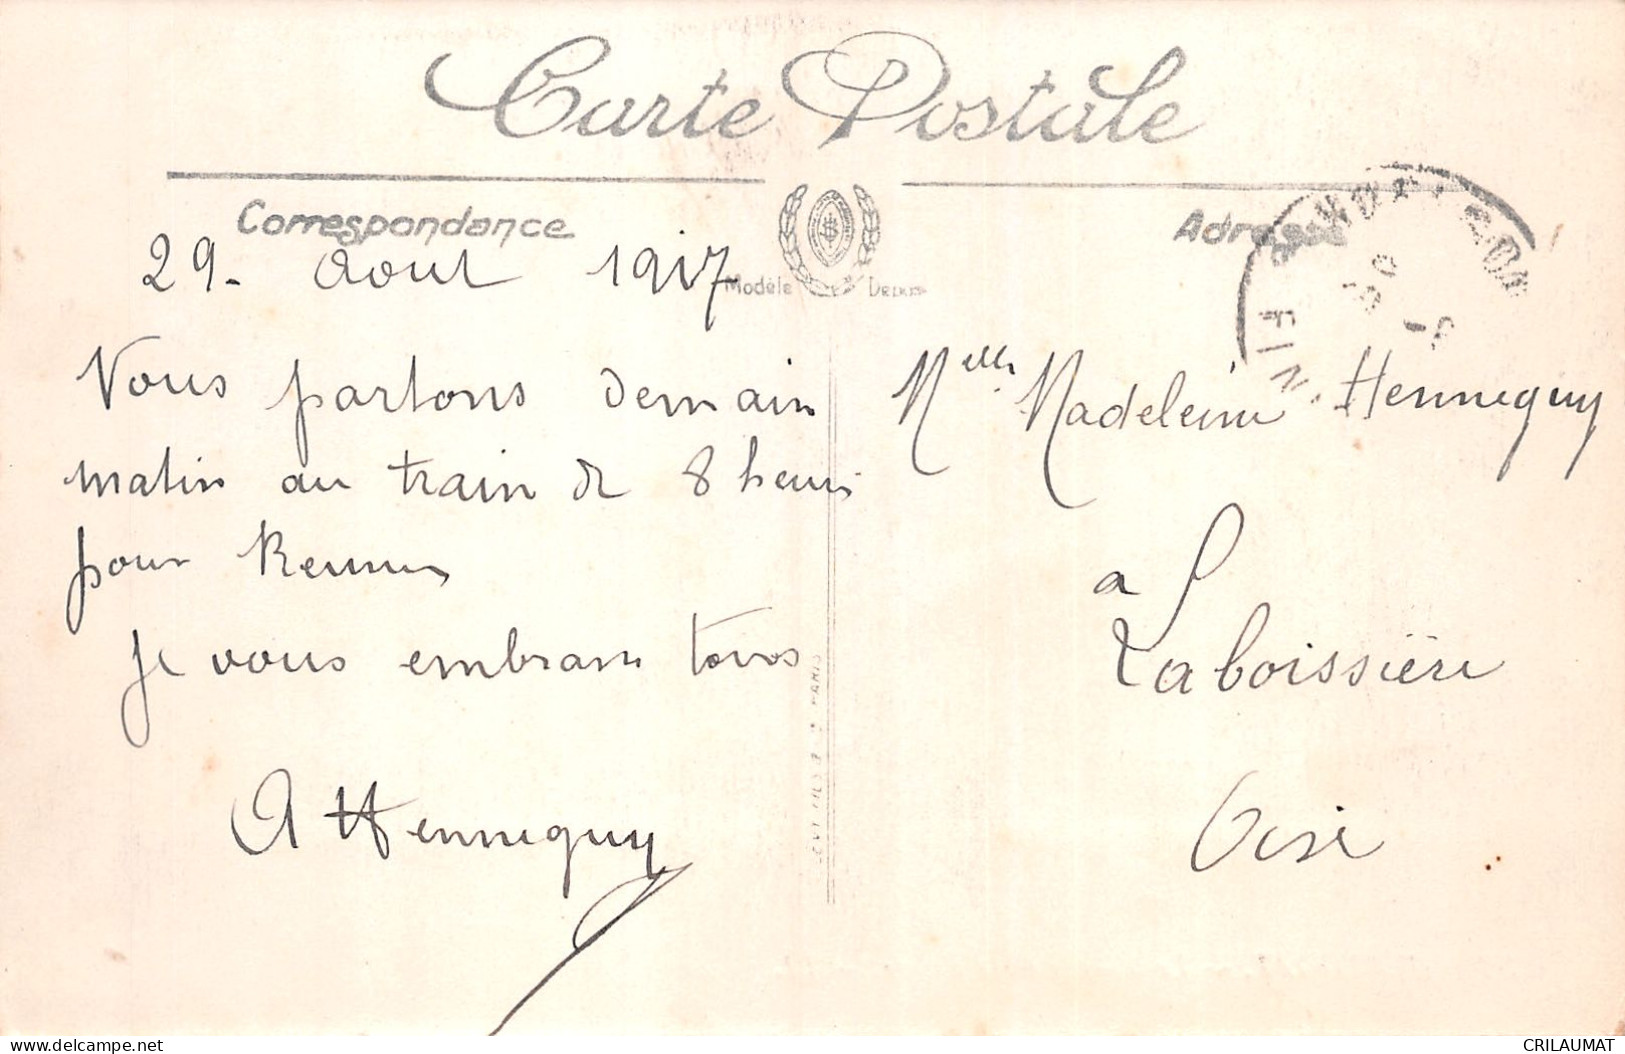 Carte Postale
Correspondance
Adresse
29. Aout 1917
Modèle
Nous partons demain
matin au train de 8 heures
pour Rennes
Je vous embrasse tous
A Hennequy
FIN
Melle Madeleine Hennequy
a
Laboissière
Oise
www.delcampe.net
CRILAUMAT